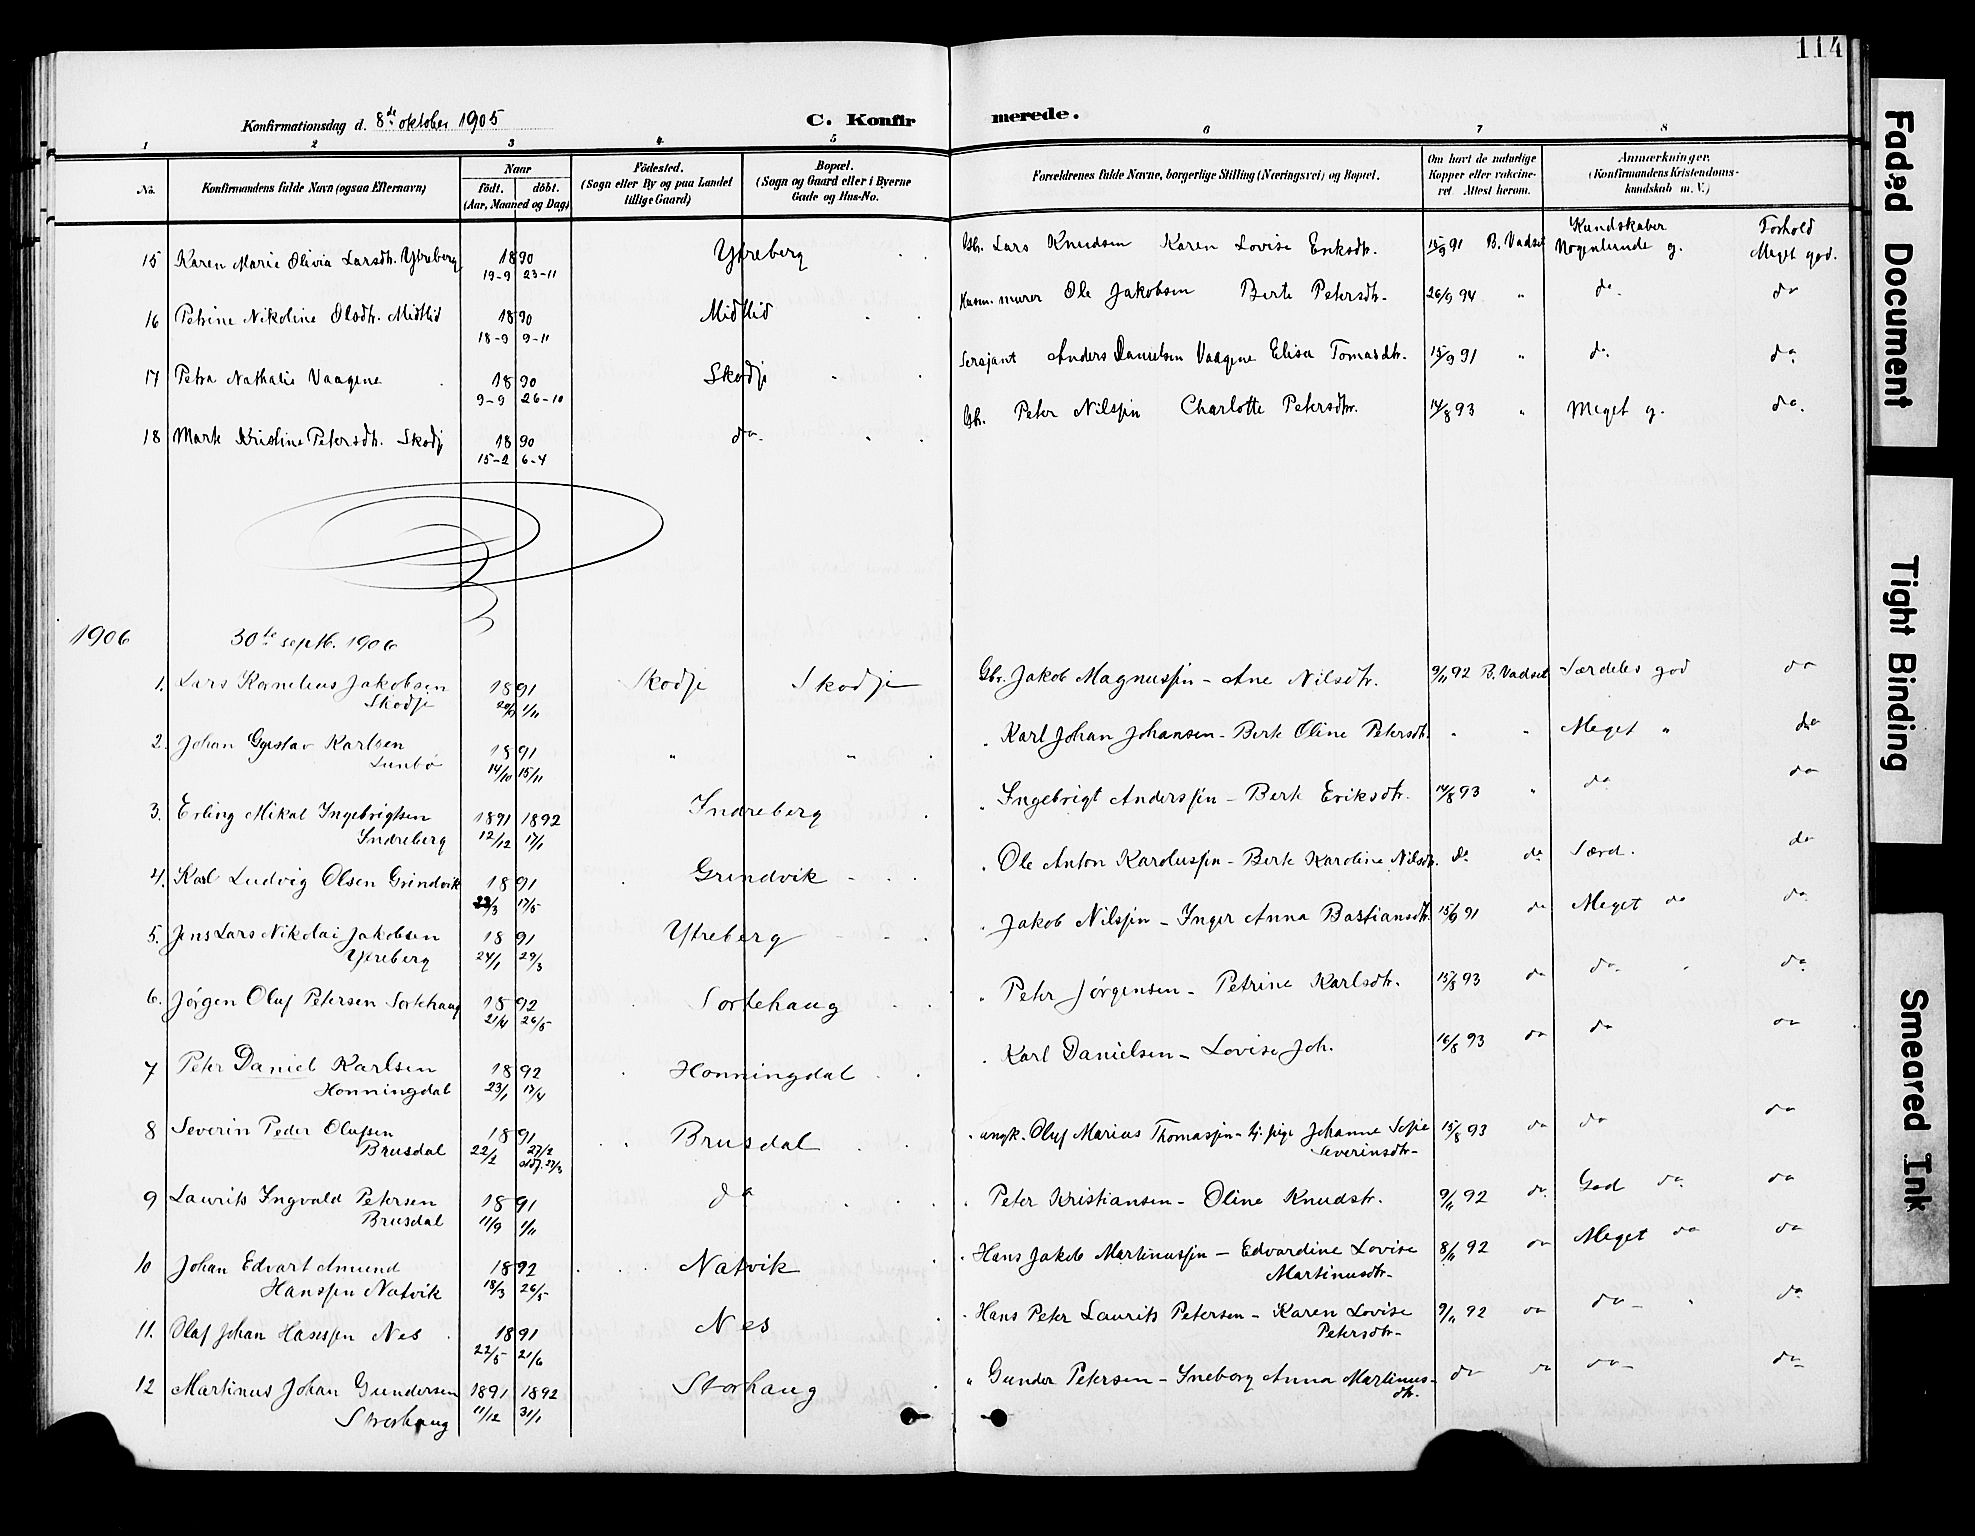 114
Konfirmationsdag d. 8de oktober 1905
C. Konfirmerede.
1 2 3 4 5 6 7 8
No. Konfirmandens fulde Navn (ogsaa Efternavn) Naar født. døbt. (Aar, Maaned og Dag) Födested. (Sogn eller By og paa Landet tillige Gaard) Bopæl. (Sogn og Gaard eller i Byerne Gade og Hus-No. Forældrenes fulde Navne, borgerlige Stilling (Næringsvei) og Bopæl. Om havt de naturlige Kopper eller vaccineret Attest herom. Anmærkninger. (Konfirmandens Kristendomskundskab m. V.)
Kundskaber Forhold
15 Karen Marie Olivia Larsdtr. Ytreberg 1890 19-9 23-11 Ytreberg Gbr. Lars Knudsen Karen Lovise Eriksdtr. 15/9 91 B. Vadset Nogenlunde g. Meget god.
16 Petrine Nikoline Olsdtr. Midtlid 1890 18-9 9-11 Midtlid Husm. murer Ole Jakobsen Berte Petersdtr. 26/9 94 " do. do
17 Petra Nathalie Vaagene 1890 9-9 26-10 Skodje Sersjant Anders Danielsen Vaagene Elisa Tomasdtr. 15/9 91 " do. do.
18 Marte Kristine Petersdtr. Skodje 1890 15-2 6-4 do. Gbr. Peter Nilssen Charlotte Petersdtr. 14/8 93 " Meget g. do.
1906 30te septb. 1906
1. Lars Kornelius Jakobsen Skodje 1891 1/11 Skodje Skodje Gbr. Jakob Magnussen - Ane Nilsdtr. 9/11 92 B. Vadset Særdeles god do
2. Johan Gustav Karlsen 1891 14/10 15/11 " " Karl Johan Johansen - Berte Oline Petersdtr. " " Meget " do
3. Erling Mikal Ingebrigtsen Indreberg 1891 1892 12/12 17/1 Indreberg " Ingebrigt Anderssen - Berte Eriksdtr. 14/8 93 " do do
4. Karl Ludvig Olsen Grindvik 1891 22/3 17/5 Grindvik " Ole Anton Karolussen - Berte Karoline Nilsdtr. do do Særd. do
5. Jens Lars Nikolai Jakobsen Ytreberg 1891 24/1 29/3 Ytreberg " Jakob Nilssen - Inger Anna Bastiansdtr. 15/9 91 do Meget do do
6. Jørgen Oluf Petersen Sortehaug 1892 21/4 26/5 Sortehaug " Peter Jørgensen - Petrine Karlsdtr. 15/8 93 do do. " do
7 Peter Daniel Karlsen Honningdal 1892 23/1 17/4 Honningdal " Karl Danielsen - Lovise Joh. 16/8 93 do do do
8 Severin Peder Olufsen Brusdal 1891 22/2 27/2 Brusdal " ungk. Oluf Marius Thomassen - tj. pige Johanne Sofie Severinsdtr- 15/8 93 do do do
9 Laurits Ingvald Petersen Brusdal 1891 11/9 1/11 do " Peter Kristiansen - Oline Knudstr. 9/11 92 do. God do. do
10 Johan Edvart Amund Hanssen Natvik 1892 18/3 26/5 Natvik " Hans Jakob Martinussen - Edvardine Lovise Martinusdtr- 8/11 92 do Meget do do
11. Olaf Johan Hanssen Nes 1891 22/5 21/6 Nes " Hans Peter Laurits Petersen - Karen Lovise Petersdtr- 9/11 92 do do - " do
12 Martinus Johan Gundersen Storhaug 1891 1892 11/12 31/1 Storhaug " Gunder Petersen - Sneborg Anna Martinusdtr. do do do- do-
Faded Document
Tight Binding
Smeared Ink